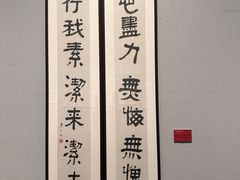 盡力無悔無
行我素潔来潔